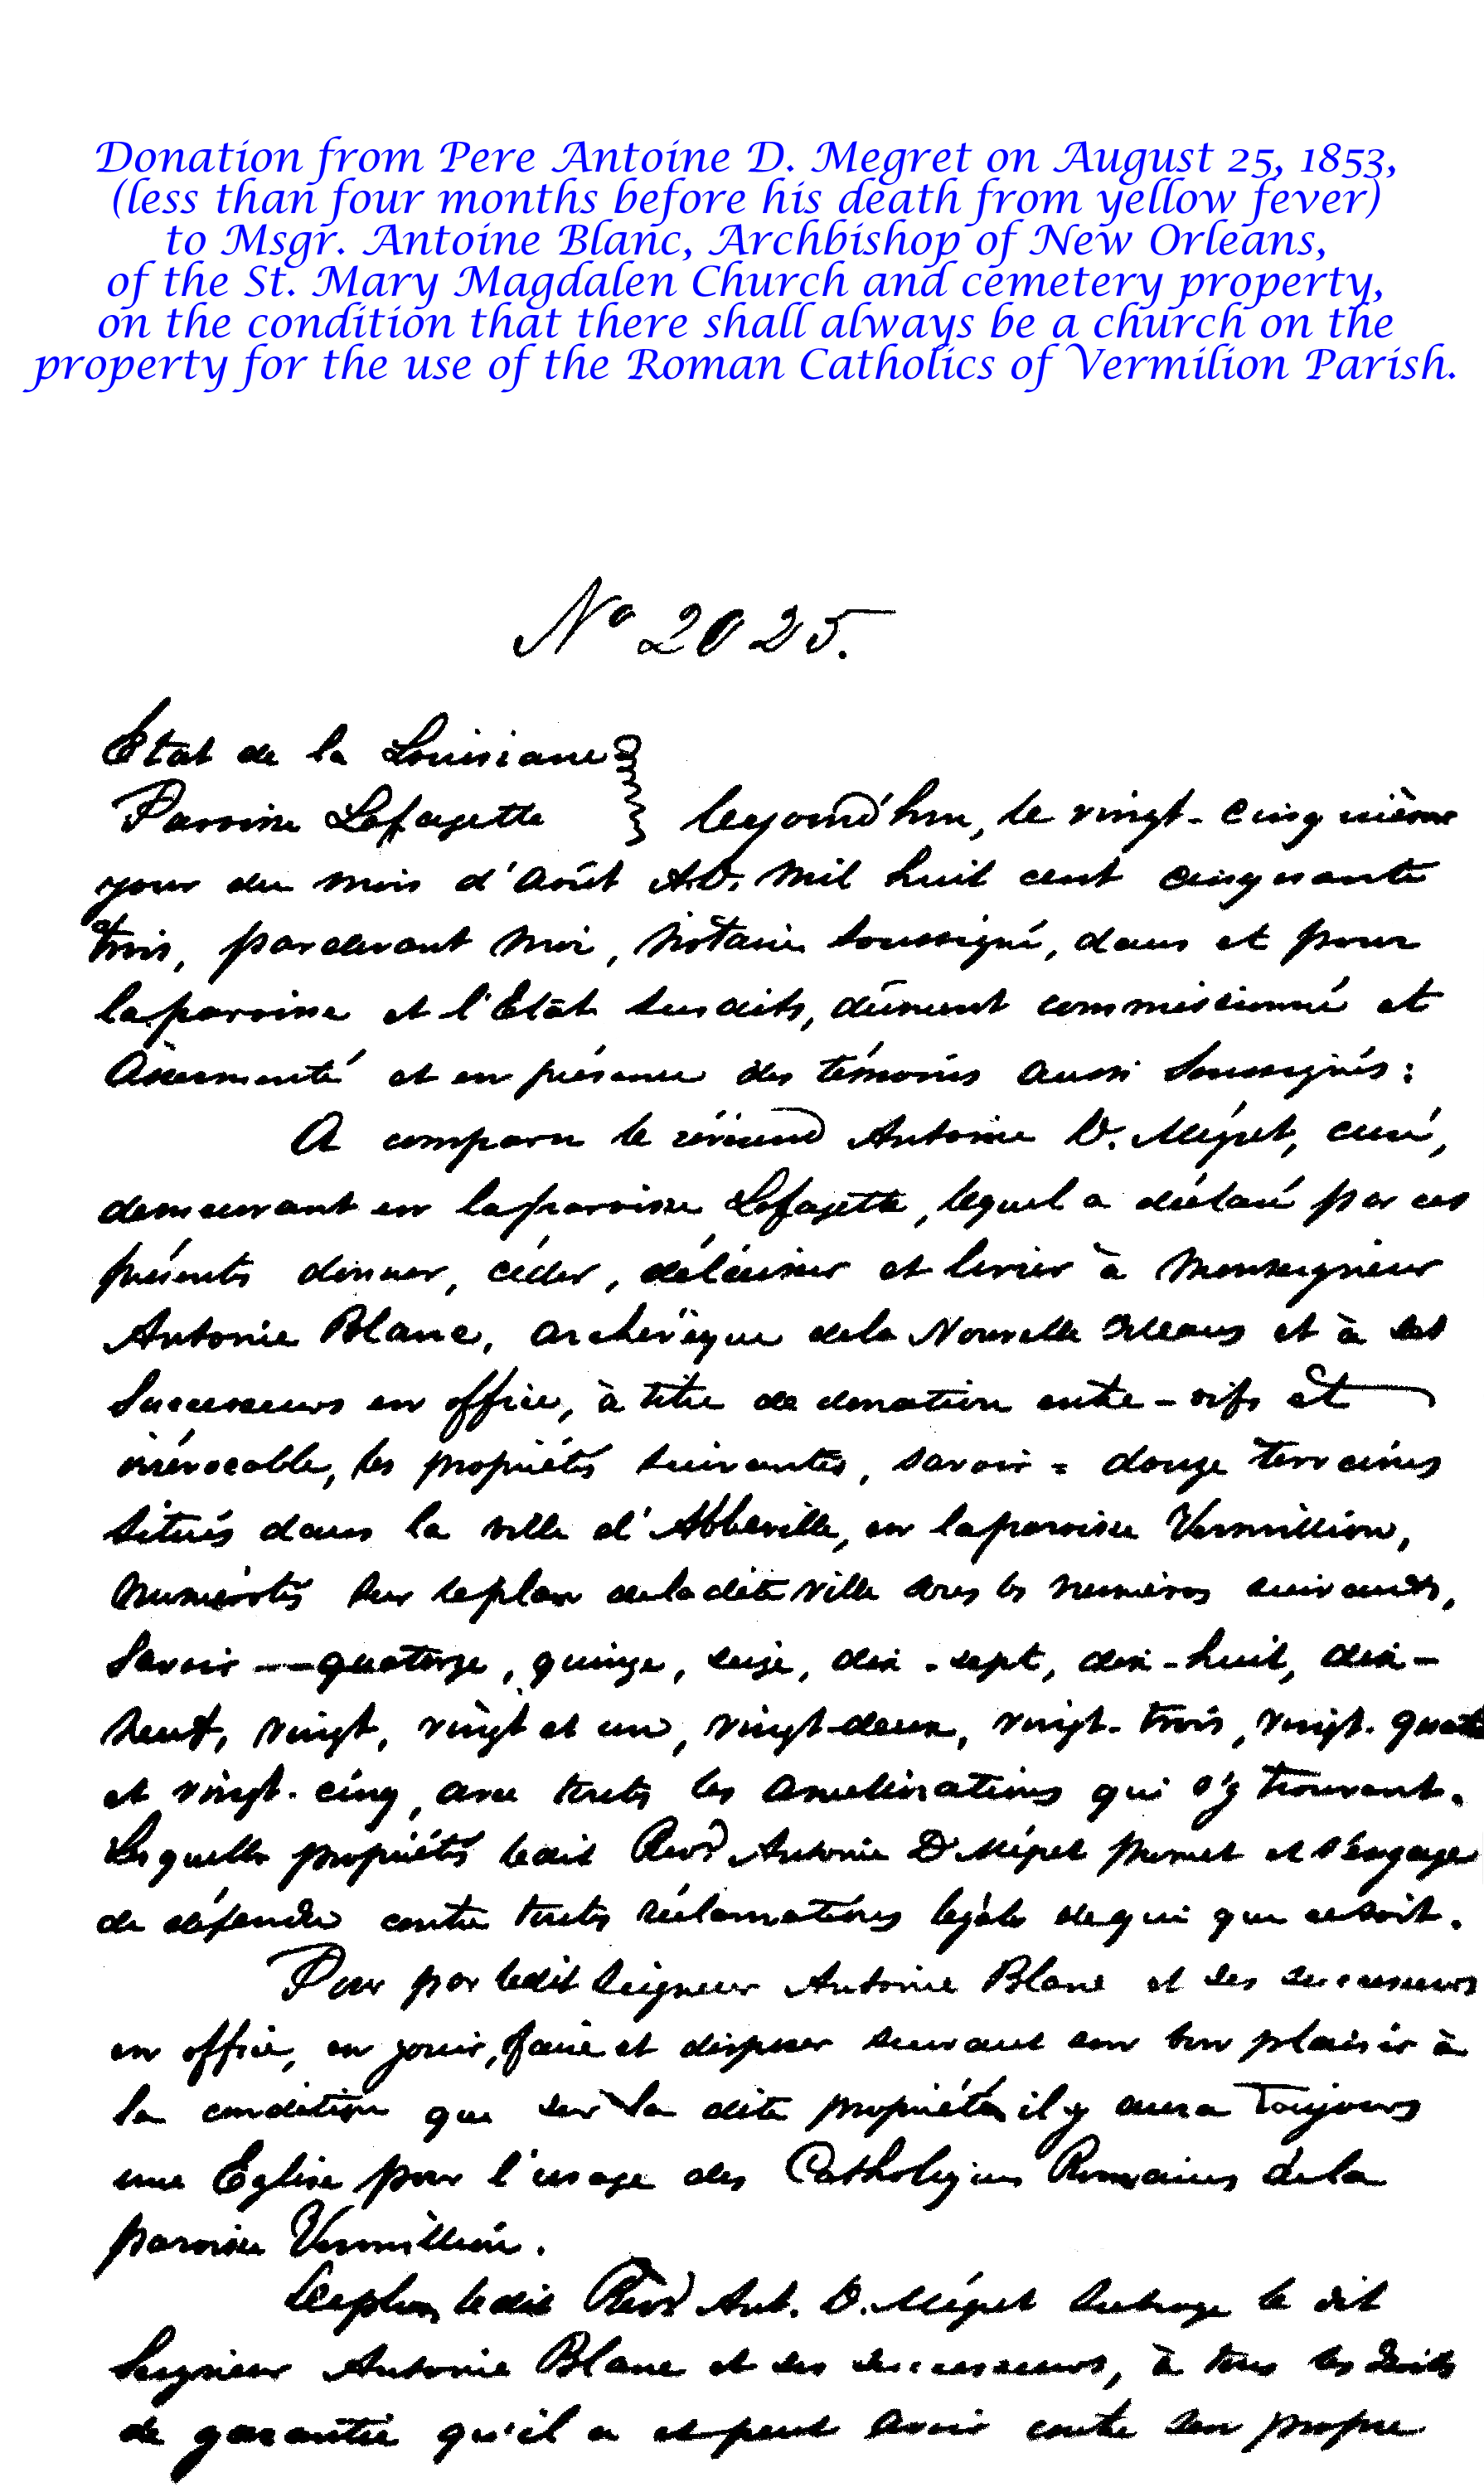 Donation from Pere Antoine D. Megret on August 25, 1853,
(less than four months before his death from yellow fever)
to Msgr. Antoine Blanc, Archbishop of New Orleans,
of the St. Mary Magdalen Church and cemetery property,
on the condition that there shall always be a church on the
property for the use of the Roman Catholics of Vermilion Parish.
No 2025.
Etat de la Louisiane
Paroisse Lafayette Cejourd'hui, le vingt-cinquième
jour du mois d'Août A.D. mil huit cent cinquante
trois, pardevant moi, Notaire soussigné, dans et pour
la paroisse et l'Etat susdits, dûment commissionné et
assermenté et en présence des témoins aussi soussignés:
A comparu le révérend Antoine D. Mégret, curé,
demeurant en la paroisse Lafayette, lequel a déclaré par ces
présentes donner, céder, délaisser et livrer à Monseigneur
Antoine Blanc, archevêque de la Nouvelle Orleans et à ses
Successeurs en office, à titre de donation entre-vifs et
irrévocable, les propriétés suivantes, savoir = douze terrains
situés dans la ville d'Abbeville, en la paroisse Vermillion,
numérotés sur le plan de la dite ville sous les numéros suivants,
Savoir -- quatorze, quinze, seize, dix-sept, dix-huit, dix-
neuf, vingt, vingt et un, vingt-deux, vingt-trois, vingt-quatre
et vingt-cinq, avec toutes les améliorations qui s'y trouvent.
Lesquelles propriétés ledit Revd Antoine D Mégret promet et s'engage
de défendre contre toutes réclamations légales de qui que ce soit.
Pour par ledit Seigneur Antoine Blanc et ses successeurs
en office, en jouir, faire et disposer suivant son bon plaisir à
la condition que sur la dite propriété il y aura toujours
une Eglise pour l'usage des Catholiques Romains de la
paroisse Vermillion.
De plus, ledit Revd Ant. D. Mégret subroge le dit
Seigneur Antoine Blanc et ses successeurs, à tous les droits
de garantie qu'il a et peut avoir contre son propre